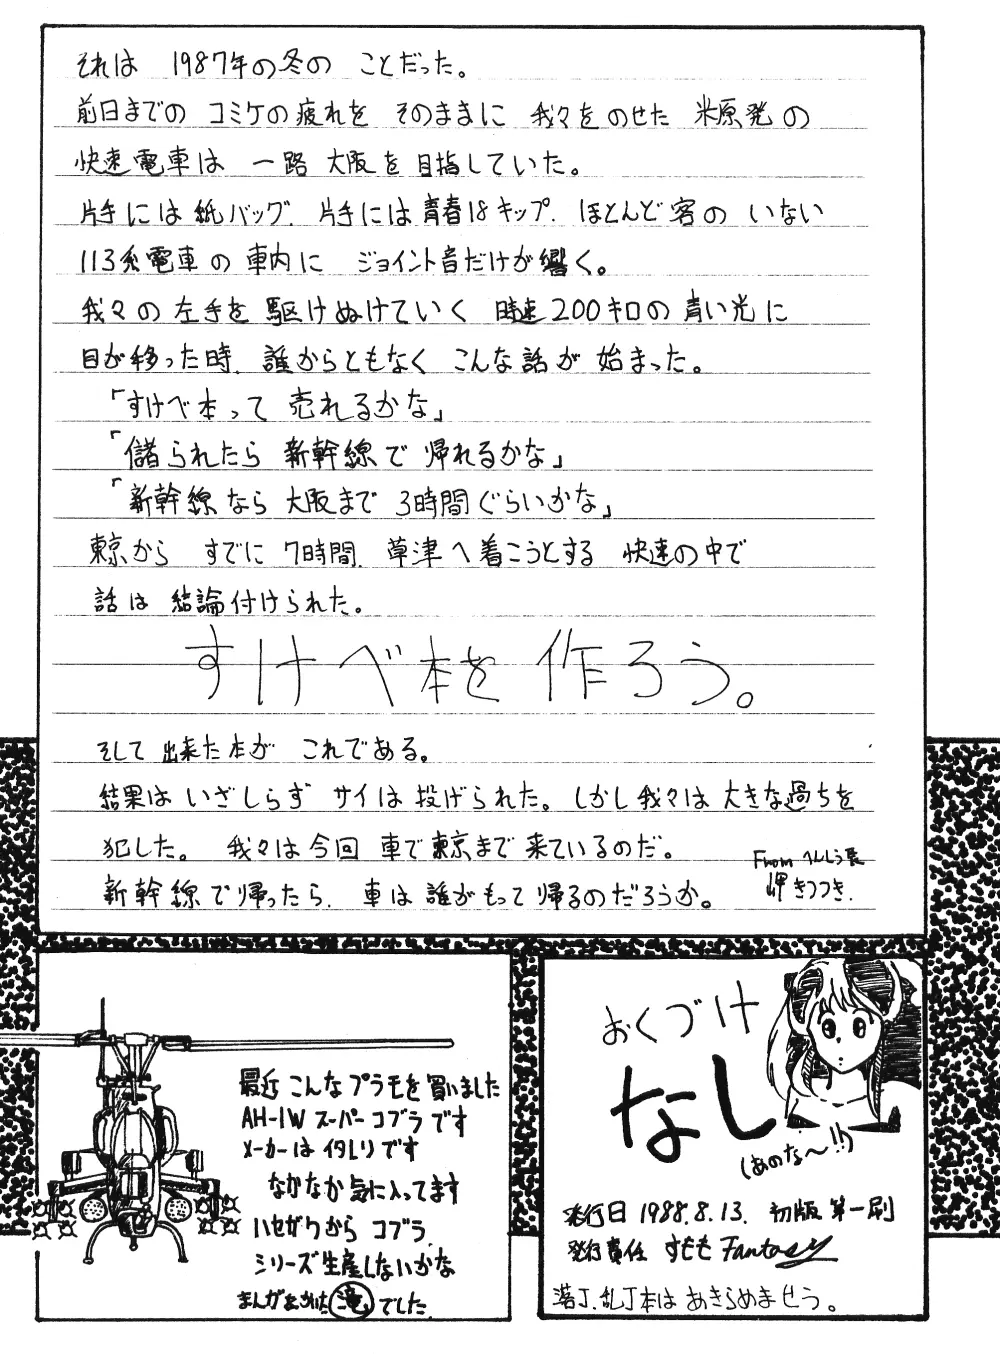 それは 1987年の冬の ことだった。
前日までの コミケの疲れを そのままに 我々をのせた 米原発の
快速電車は 一路 大阪を目指していた。
片手には紙バッグ、片手には青春18キップ、ほとんど客の いない
113系電車の 車内に ジョイント音だけが響く。
我々の左手を 駆けぬけていく 時速200キロの青い光に
目が移った時、誰からともなく こんな話が 始まった。
「すけべ本って 売れるかな」
「儲られたら 新幹線で 帰れるかな」
「新幹線なら 大阪まで 3時間ぐらいかな」
東京から すでに 7時間、草津へ着こうとする 快速の中で
話は 結論付けられた。
すけべ本を 作ろう。
そして 出来た本が これである。
結果は いざしらず サイは投げられた。しかし我々は 大きな過ちを
犯した。 我々は今回 車で東京まで来ているのだ。
新幹線で帰ったら、車は 誰がもって 帰るのだろうか。
From へんしう長
岬 きつつき.
最近 こんなプラモを買いました
AH-1W スーパーコブラです
メーカーは イタレリです
なかなか気に入ってます
ハセガワから コブラ
シリーズ生産しないかな
まんがをかいた 滝 でした.
おくづけ
なし
(あのな〜!!)
発行日 1988.8.13. 初版 第一刷
発行責任 すもも Fantasy
落丁、乱丁本は あきらめませう。